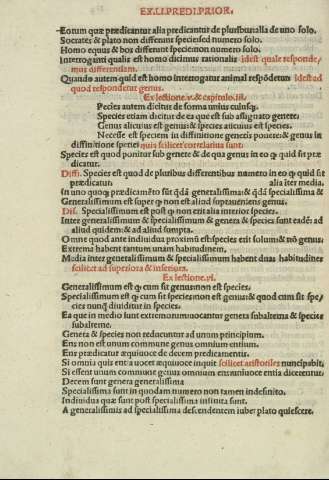 EX.LI.PREDI.PRIOR.
Eorum quæ prædicantur alia prædicantur de pluribus alia de uno solo.
Socrates & plato non differunt specie sed numero solo.
Homo equus & box differunt specie non numero solo.
Interroganti qualis est homo dicimus rationalis idest quale responde,
mus differentiam.
Quando autem quid est homo interrogatur animal respōdetur Idest ad
quod respondetur genus.
Ex lectione.v.& capitulo.iii.
Pecies autem dicitur de forma unius cuiusq.
Species etiam dicitur de ea que est sub assignato genere:
Genus alicuius est genus: & species alicuius est species.
Necesse est speciem in diffinitione generis ponere: & genus in
diffinitione speciei quis scilicet correlariua sunt
Species est quod ponitur sub genere & de qua genus in eo q quid sit præ
dicatur.
Diffi. Species est quod de pluribus differentibus numero in eo q quid sit
prædicatur. alia iter media.
In uno quoq prædicamēto sūt qdā generalissima: & qdā specialissima &
Generalissimum est super q non est aliud supraueniens genus.
Dif. Specialissimum est post q non erit alia inferior species.
Inter generalissimum & specialissimum & genera & species sunt eadē: ad
aliud quidem: & ad aliud sumpta.
Omne quod ante indiuidua proximū est species erit solum: & nō genus
Extrema habent tantum unam habitudinem.
Media inter generalissimum & specialissimum habent duas habitudines
scilicet ad superiora & inferiora.
Ex lectione.vi.
Generalissimum est q cum sit genus non est species:
Specialissimum est q cum sit species non est genus: & quod cum sit spe,
cies nunq diuiditur in species.
Ea que in medio sunt extremorum uocantur genera subalterna & species
subalterne.
Genera & species non reducuntur ad unum principium.
Ens non est unum commune genus omnium entium.
Ens prædicatur æquiuoce de decem predicamentis.
Si omnia quis entia uocet æquiuoce inquit scilicet aristotiles nuncupabit,
Si esset unum commune genus omnium entium uniuoce entia dicerentur.
Decem sunt genera generalissima
Specialissima sunt in quodam numero non tamen indefinito.
Indiuidua quæ sunt post specialissima infinita sunt.
A generalissimis ad specialissima descendentem iubet plato quiescere.